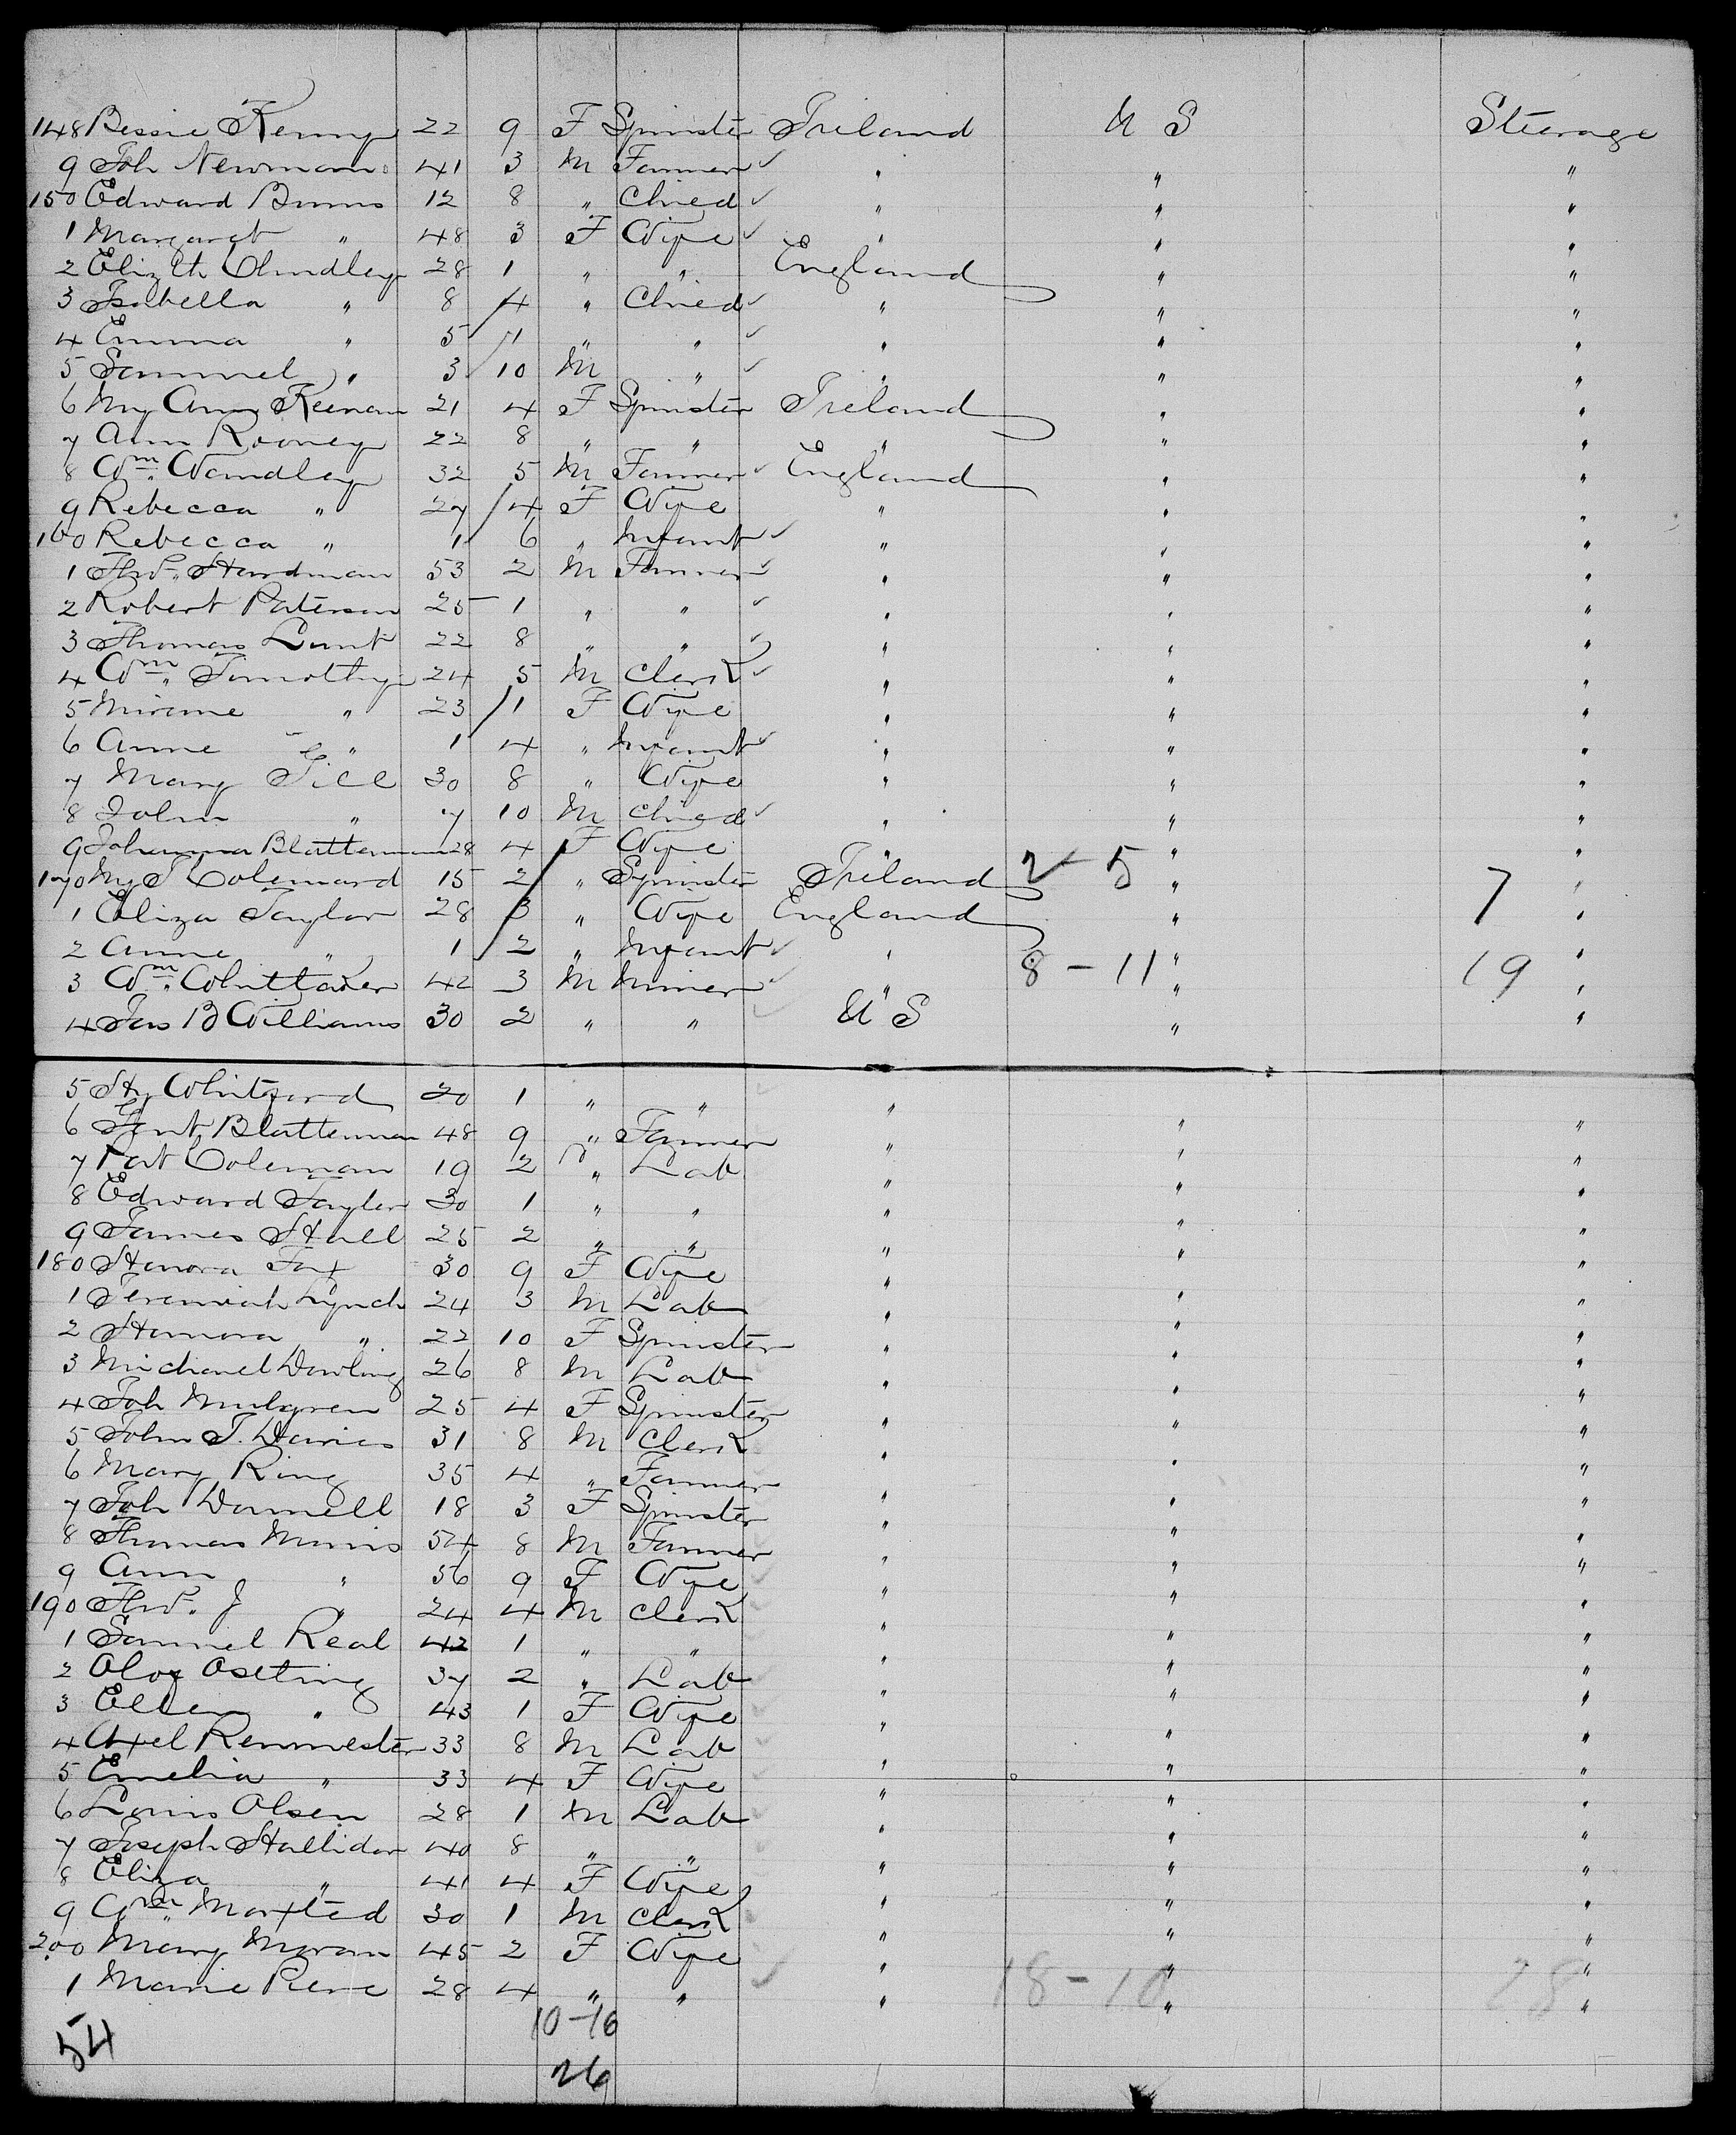 148 Bessie Kenny 22 9 F Spinster Ireland U S Steerage
9 Joh Newman 41 3 M Farmer ✓ " " "
150 Edward Burns 12 8 " Child ✓ " " "
1 Margaret " 48 3 F Wife ✓ " " "
2 Elizth Chudley 28 1 " " England " "
3 Isabella " 8 4 " Child ✓ " " "
4 Emma " 5 1 " " ✓ " " "
5 Sammel " 3 10 M " ✓ " " "
6 My Ann Keenan 21 4 F Spinster Ireland " "
7 Ann Rooney 22 8 " " " " "
8 Wm Wandley 32 5 M Farmer ✓ England " "
9 Rebecca " 27 4 F Wife " " "
160 Rebecca " 1 6 " Infant ✓ " " "
1 Thos. Hardman 53 2 M Farmer ✓ " " "
2 Robert Paterson 25 1 " " ✓ " " "
3 Thomas Lunt 22 8 " " ✓ " " "
4 Wm. Timothy 24 5 M Clerk ✓ " " "
5 " 23 1 F Wife " " "
6 Anne " 1 4 " Infant ✓ " " "
7 Mary Gill 30 8 " Wife " " "
8 John " 7 10 M Child ✓ " " "
9 Johanna Blatterman 28 4 F Wife " "
170 My J Colemard 15 2 " Spinster Ireland 2 - 5 " 7 "
1 Eliza Taylor 28 3 " Wife England " "
2 Anne " 1 2 " Infant ✓ " 8 - 11 " 19 "
3 Wm. Whittaker 42 3 M Miner ✓ " " "
4 Jas B Williams 30 2 " " U S " "
5 Hy Whitford 20 1 " " "
6 Blatterman 48 9 " Farmer " " "
7 Pat Coleman 19 2 " Lab " " "
8 Edward Taylor 30 1 " " " " "
9 James Hall 25 2 " " " " "
180 Hanora Fox 30 9 F Wife " " "
1 Jeremiah Lynch 24 3 M Lab " " "
2 Hanora " 22 10 F Spinster " " "
3 Michael Dowling 26 8 M Lab " " "
4 Joh Mulgren 25 4 F Spinster " " "
5 John J. Davies 31 8 M Clerk " " "
6 Mary Ring 35 4 " Farmer " " "
7 Joh Donnell 18 3 F Spinster " " "
8 Thomas Morris 54 8 M Farmer " " "
9 Ann " 56 9 F Wife " " "
190 Thos. J " 24 4 M Clerk " " "
1 Sammel Real 42 1 " " " " "
2 Olof Oselting 37 2 " Lab " " "
3 Ellen " 43 1 F Wife " " "
4 Axel Renmester 33 8 M Lab " " "
5 Emelia " 33 4 F Wife " " "
6 Louis Olsen 28 1 M Lab " " "
7 Joseph Hallidar 40 8 " " " " "
8 Eliza " 41 4 F Wife " " "
9 Wm. Maxted 30 1 M Clerk " " "
200 Mary Moran 45 2 F Wife " " "
1 Marie Rene 28 4 " " ✓ " 18 - 10 " 28 "
54 10-16
26